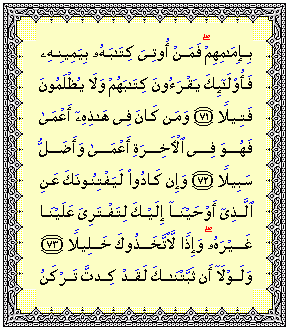 بِإِمَٰمِهِمْ ۖ فَمَنْ أُوتِىَ كِتَٰبَهُۥ بِيَمِينِهِۦ
فَأُو۟لَٰٓئِكَ يَقْرَءُونَ كِتَٰبَهُمْ وَلَا يُظْلَمُونَ
فَتِيلًا ﴿٧١﴾ وَمَن كَانَ فِى هَٰذِهِۦٓ أَعْمَىٰ
فَهُوَ فِى ٱلْءَاخِرَةِ أَعْمَىٰ وَأَضَلُّ
سَبِيلًا ﴿٧٢﴾ وَإِن كَادُوا۟ لَيَفْتِنُونَكَ عَنِ
ٱلَّذِىٓ أَوْحَيْنَآ إِلَيْكَ لِتَفْتَرِىَ عَلَيْنَا
غَيْرَهُۥ ۖ وَإِذًا لَّٱتَّخَذُوكَ خَلِيلًا ﴿٧٣﴾
وَلَوْلَآ أَن ثَبَّتْنَٰكَ لَقَدْ كِدتَّ تَرْكَنُ